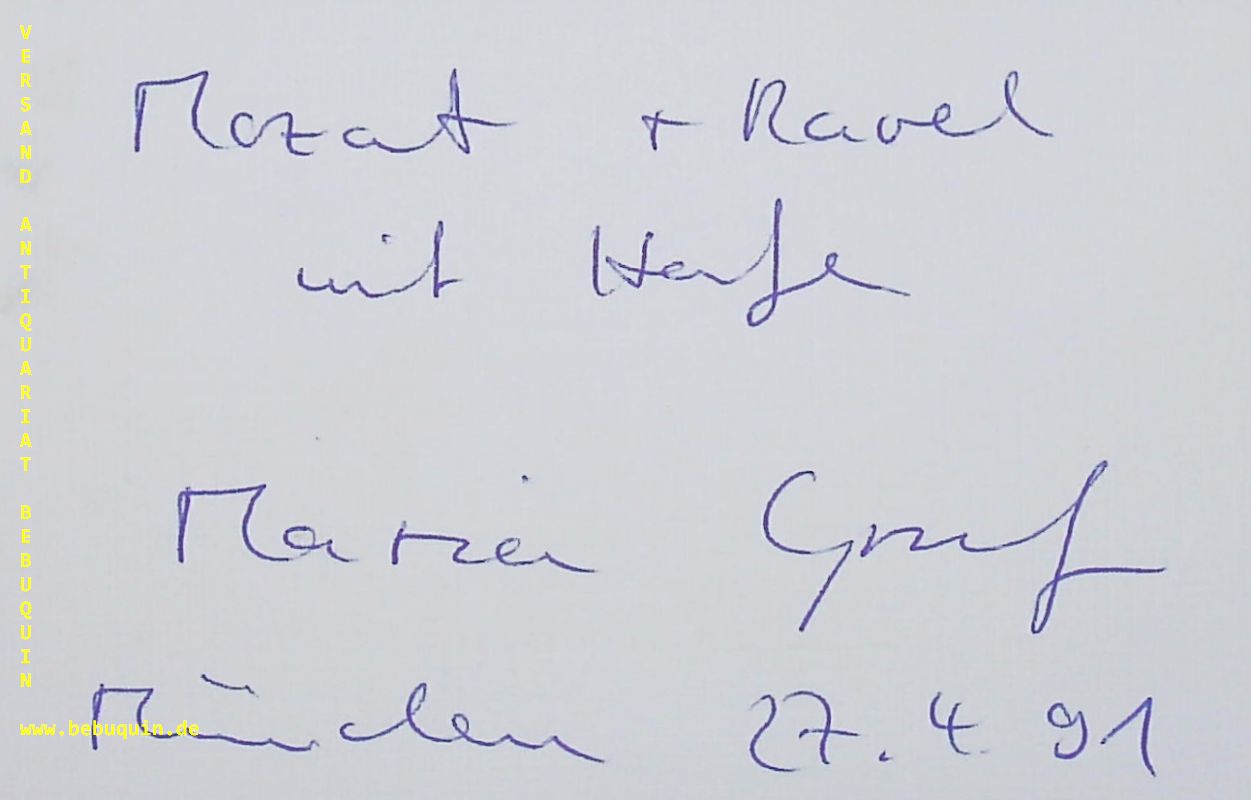 Mozart + Ravel
mit Harfe
Maria Graf
München 27.4.91
VERSAND ANTIQUARIAT BEBUQUIN
www.bebuquin.de